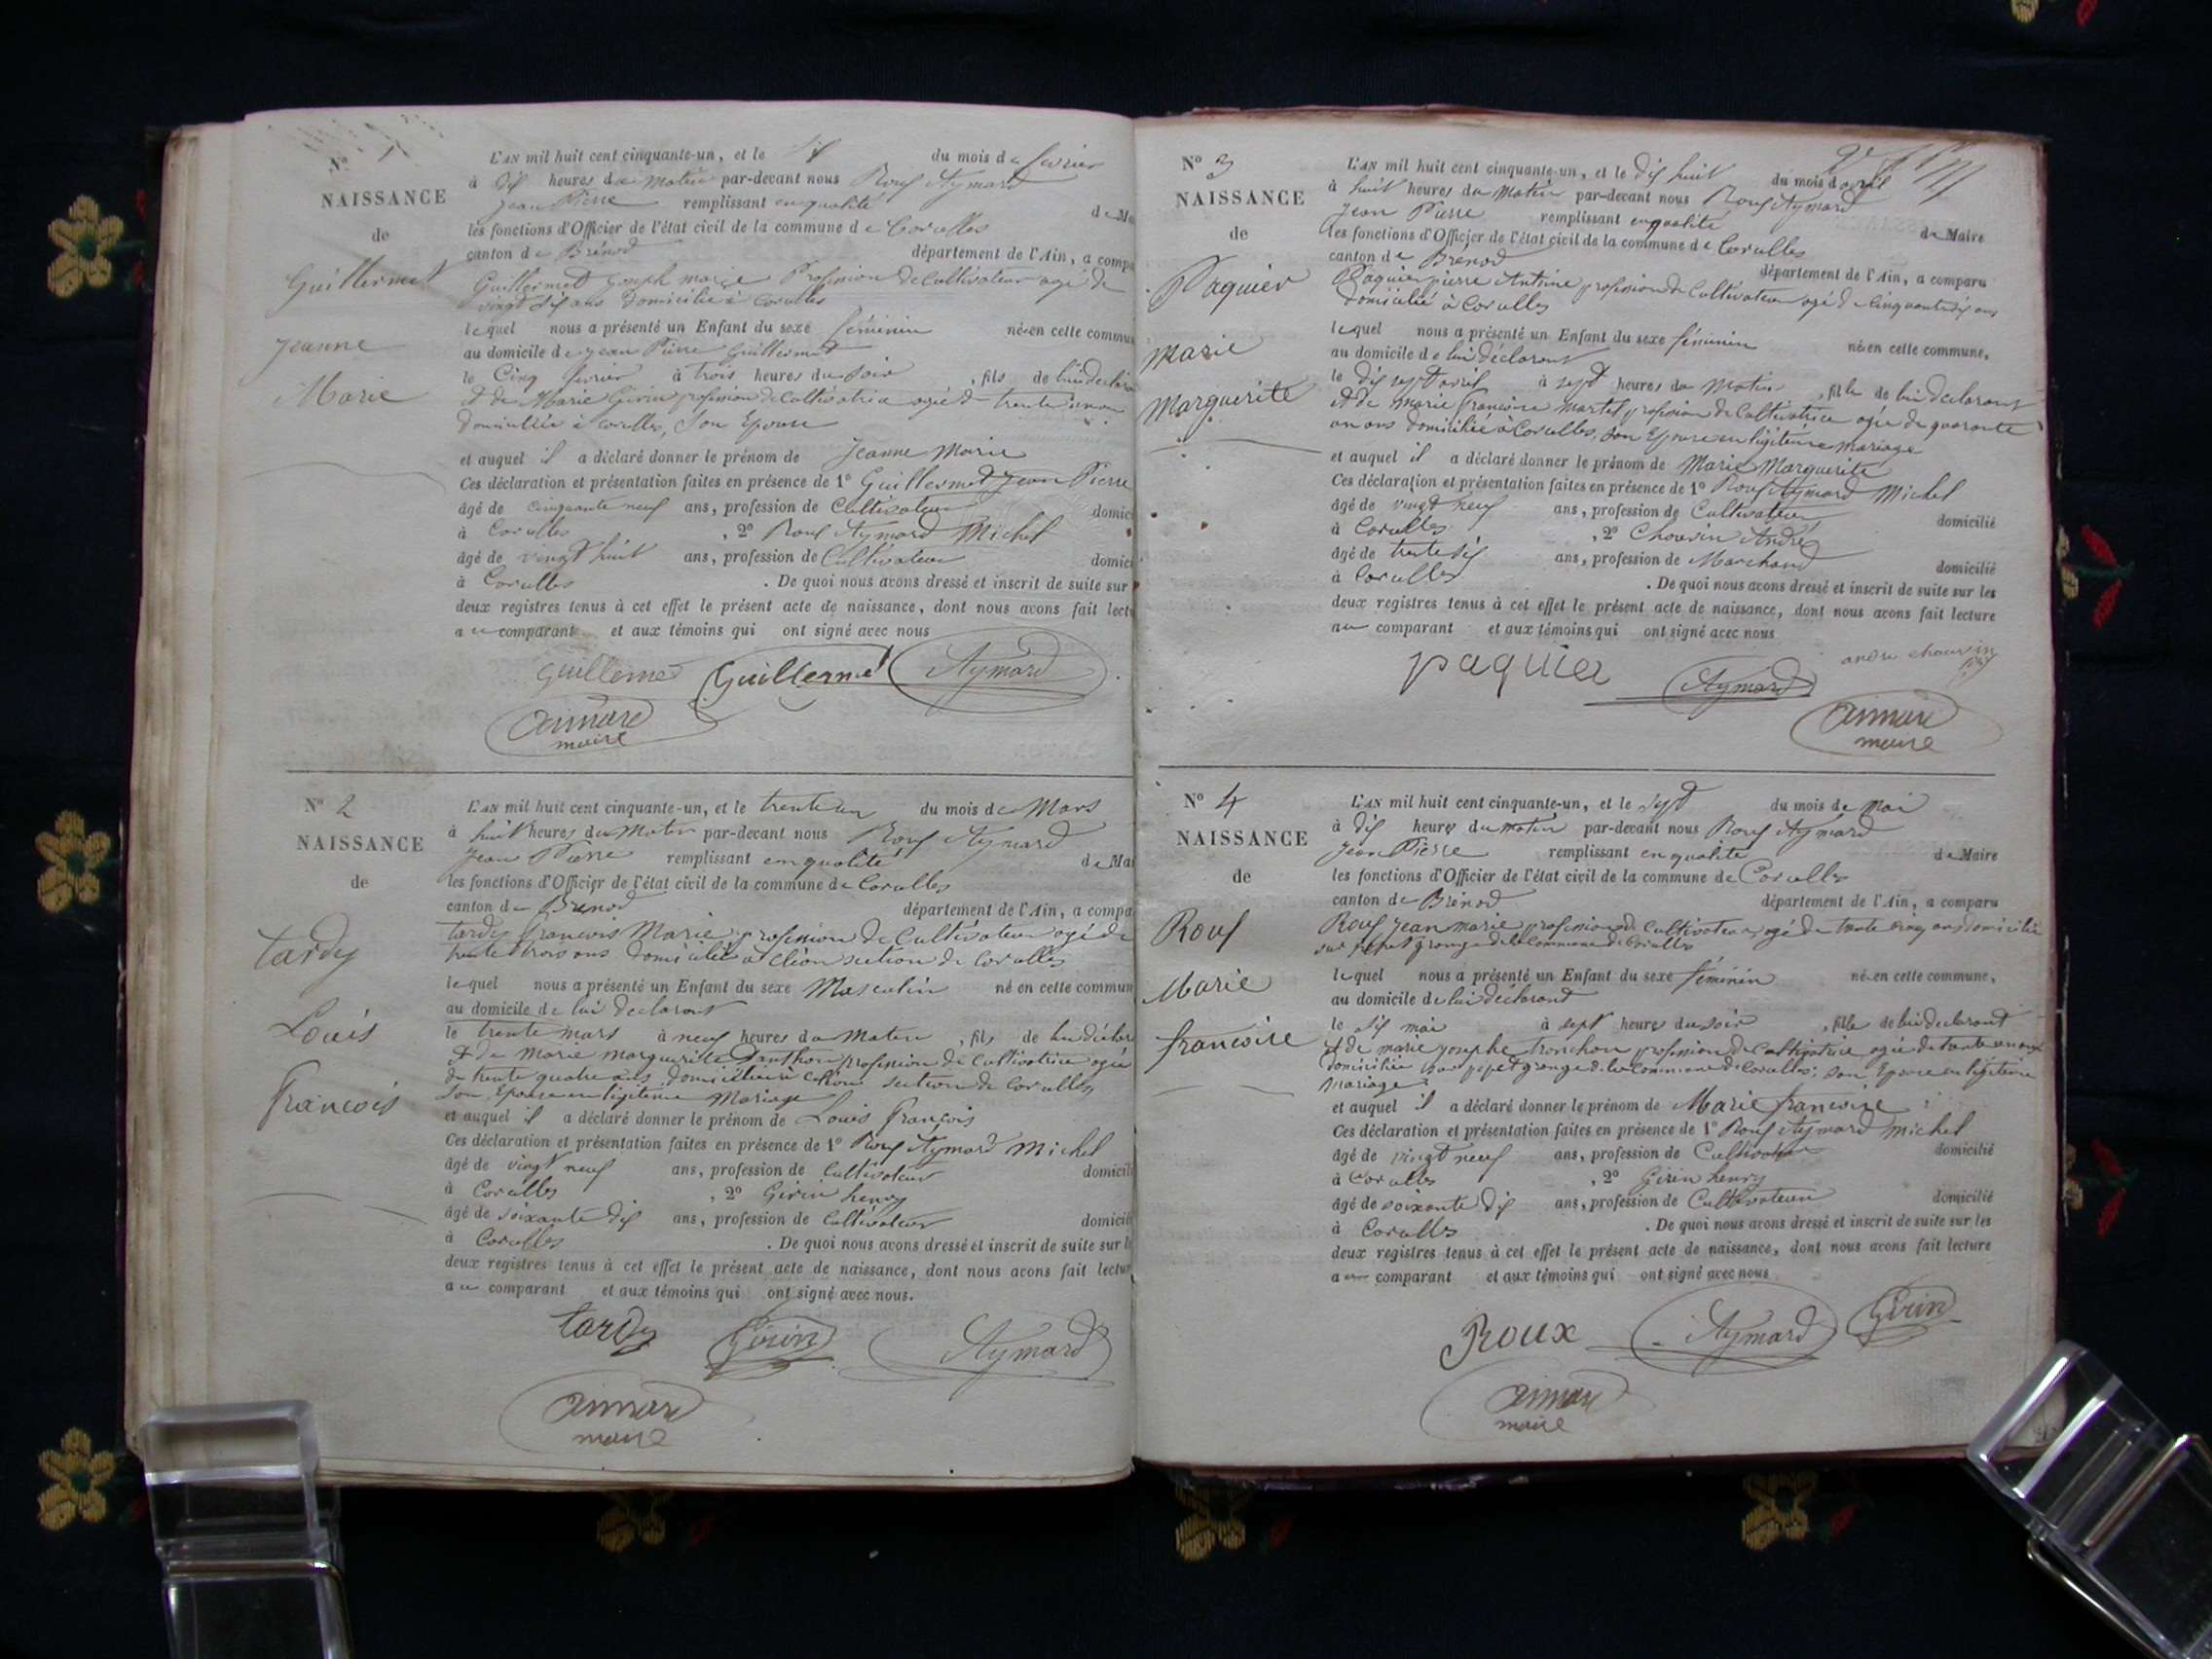 N° 1
NAISSANCE
de
Guillermet
Jeanne
Marie
L'AN mil huit cent cinquante-un, et le six du mois de février
à dix heures du matin par-devant nous Roux Aymard
Jean Pierre remplissant en qualité de Ma
les fonctions d'Officier de l'état civil de la commune de Corcelles
canton de Brénod département de l'Ain, a compa
Guillermet Joseph marie Profession de Cultivateur agé de
vingt six ans domicilié à Corcelles
lequel nous a présenté un Enfant du sexe féminin né en cette commun
au domicile de Jean Pierre Guillermet
le Cinq février à trois heures du soir , fils de lui déclara
& de Marie Girin profession de Cultivatrice agée de trente un an
domiciliée à Corcelles, Son Epouse
et auquel il a déclaré donner le prénom de Jeanne Marie
Ces déclaration et présentation faites en présence de 1° Guillermet Jean Pierre
âgé de cinquante neuf ans, profession de Cultivateur domici
à Corcelles , 2° Roux Aymard Michel
âgé de vingt huit ans, profession de Cultivateur domici
à Corcelles . De quoi nous avons dressé et inscrit de suite sur
deux registres tenus à cet effet le présent acte de naissance, dont nous avons fait lectu
au comparant et aux témoins qui ont signé avec nous
Guillerme Guillerme Aymard
aimard
maire
N° 2
NAISSANCE
de
tardy
Louis
françois
L'AN mil huit cent cinquante-un, et le trente un du mois de Mars
à huit heures du Matin par-devant nous Roux Aymard
Jean Pierre remplissant en qualité de Mai
les fonctions d'Officier de l'état civil de la commune de Corcelles
canton de Brénod département de l'Ain, a compa
tardy françois Marie profession de Cultivateur agé de
trente trois ans domicilié à Cléon section de Corcelles
lequel nous a présenté un Enfant du sexe Masculin né en cette commun
au domicile de lui déclarant
le trente mars à neuf heures du Matin , fils de lui déclar
& de Marie marguerite Danthon profession de Cultivatrice agée
de trente quatre ans domiciliée à section de Corcelles
son Epouse en légitime Mariage
et auquel il a déclaré donner le prénom de Louis françois
Ces déclaration et présentation faites en présence de 1° Roux Aymard Michel
âgé de vingt neuf ans, profession de Cultivateur domicili
à Corcelles , 2° Girin henry
âgé de soixante dix ans, profession de Cultivateur domicili
à Corcelles . De quoi nous avons dressé et inscrit de suite sur le
deux registres tenus à cet effet le présent acte de naissance, dont nous avons fait lectur
au comparant et aux témoins qui ont signé avec nous.
tardy Girin Aymard
aimard
maire
N° 3
NAISSANCE
de
Paquier
Marie
Marguerite
L'AN mil huit cent cinquante-un, et le dix huit du mois d avril
à huit heures du Matin par-devant nous Roux Aymard
Jean Pierre remplissant en qualité de Maire
les fonctions d'Officier de l'état civil de la commune de Corcelles
canton de Brénod département de l'Ain, a comparu
Paquier pierre Antoine profession de Cultivateur agé de cinquante six ans
domicilié à Corcelles
lequel nous a présenté un Enfant du sexe féminin né en cette commune,
au domicile de lui déclarant
le dix sept avril à sept heures du Matin , fille de lui déclarant
& de marie françoise martel profession de Cultivatrice agée de quarante
un ans domiciliée à Corcelles, son Epouse en légitime mariage
et auquel il a déclaré donner le prénom de Marie Marguerite
Ces déclaration et présentation faites en présence de 1° Roux Aymard Michel
âgé de vingt neuf ans, profession de Cultivateur domicilié
à Corcelles , 2° Chouvin André
âgé de trente six ans, profession de Marchand domicilié
à Corcelles . De quoi nous avons dressé et inscrit de suite sur les
deux registres tenus à cet effet le présent acte de naissance, dont nous avons fait lecture
au comparant et aux témoins qui ont signé avec nous
paquie Aymard andre chouvin
aimard
maire
N° 4
NAISSANCE
de
Roux
Marie
francoise
L'AN mil huit cent cinquante-un, et le sept du mois de mai
à dix heures du matin par-devant nous Roux Aymard
Jean Pierre remplissant en qualité de Maire
les fonctions d'Officier de l'état civil de la commune de Corcelles
canton de Brénod département de l'Ain, a comparu
Roux Jean marie profession de Cultivateur agé de trente cinq ans domicilié
sur grange de la Commune de Corcelles
lequel nous a présenté un Enfant du sexe féminin né en cette commune,
au domicile de lui déclarant
le six mai à sept heures du soir , fille de lui déclarant
& de marie josephe tronchon profession de Cultivatrice agée de trente un ans
domiciliée sur grange de la Commune de Corcelles, son Epouse en légitime
mariage
et auquel il a déclaré donner le prénom de Marie francoise
Ces déclaration et présentation faites en présence de 1° Roux Aymard Michel
âgé de vingt neuf ans, profession de Cultivateur domicilié
à Corcelles , 2° Girin henry
âgé de soixante dix ans, profession de Cultivateur domicilié
à Corcelles . De quoi nous avons dressé et inscrit de suite sur les
deux registres tenus à cet effet le présent acte de naissance, dont nous avons fait lecture
au comparant et aux témoins qui ont signé avec nous
Roux Aymard Girin
aimard
maire